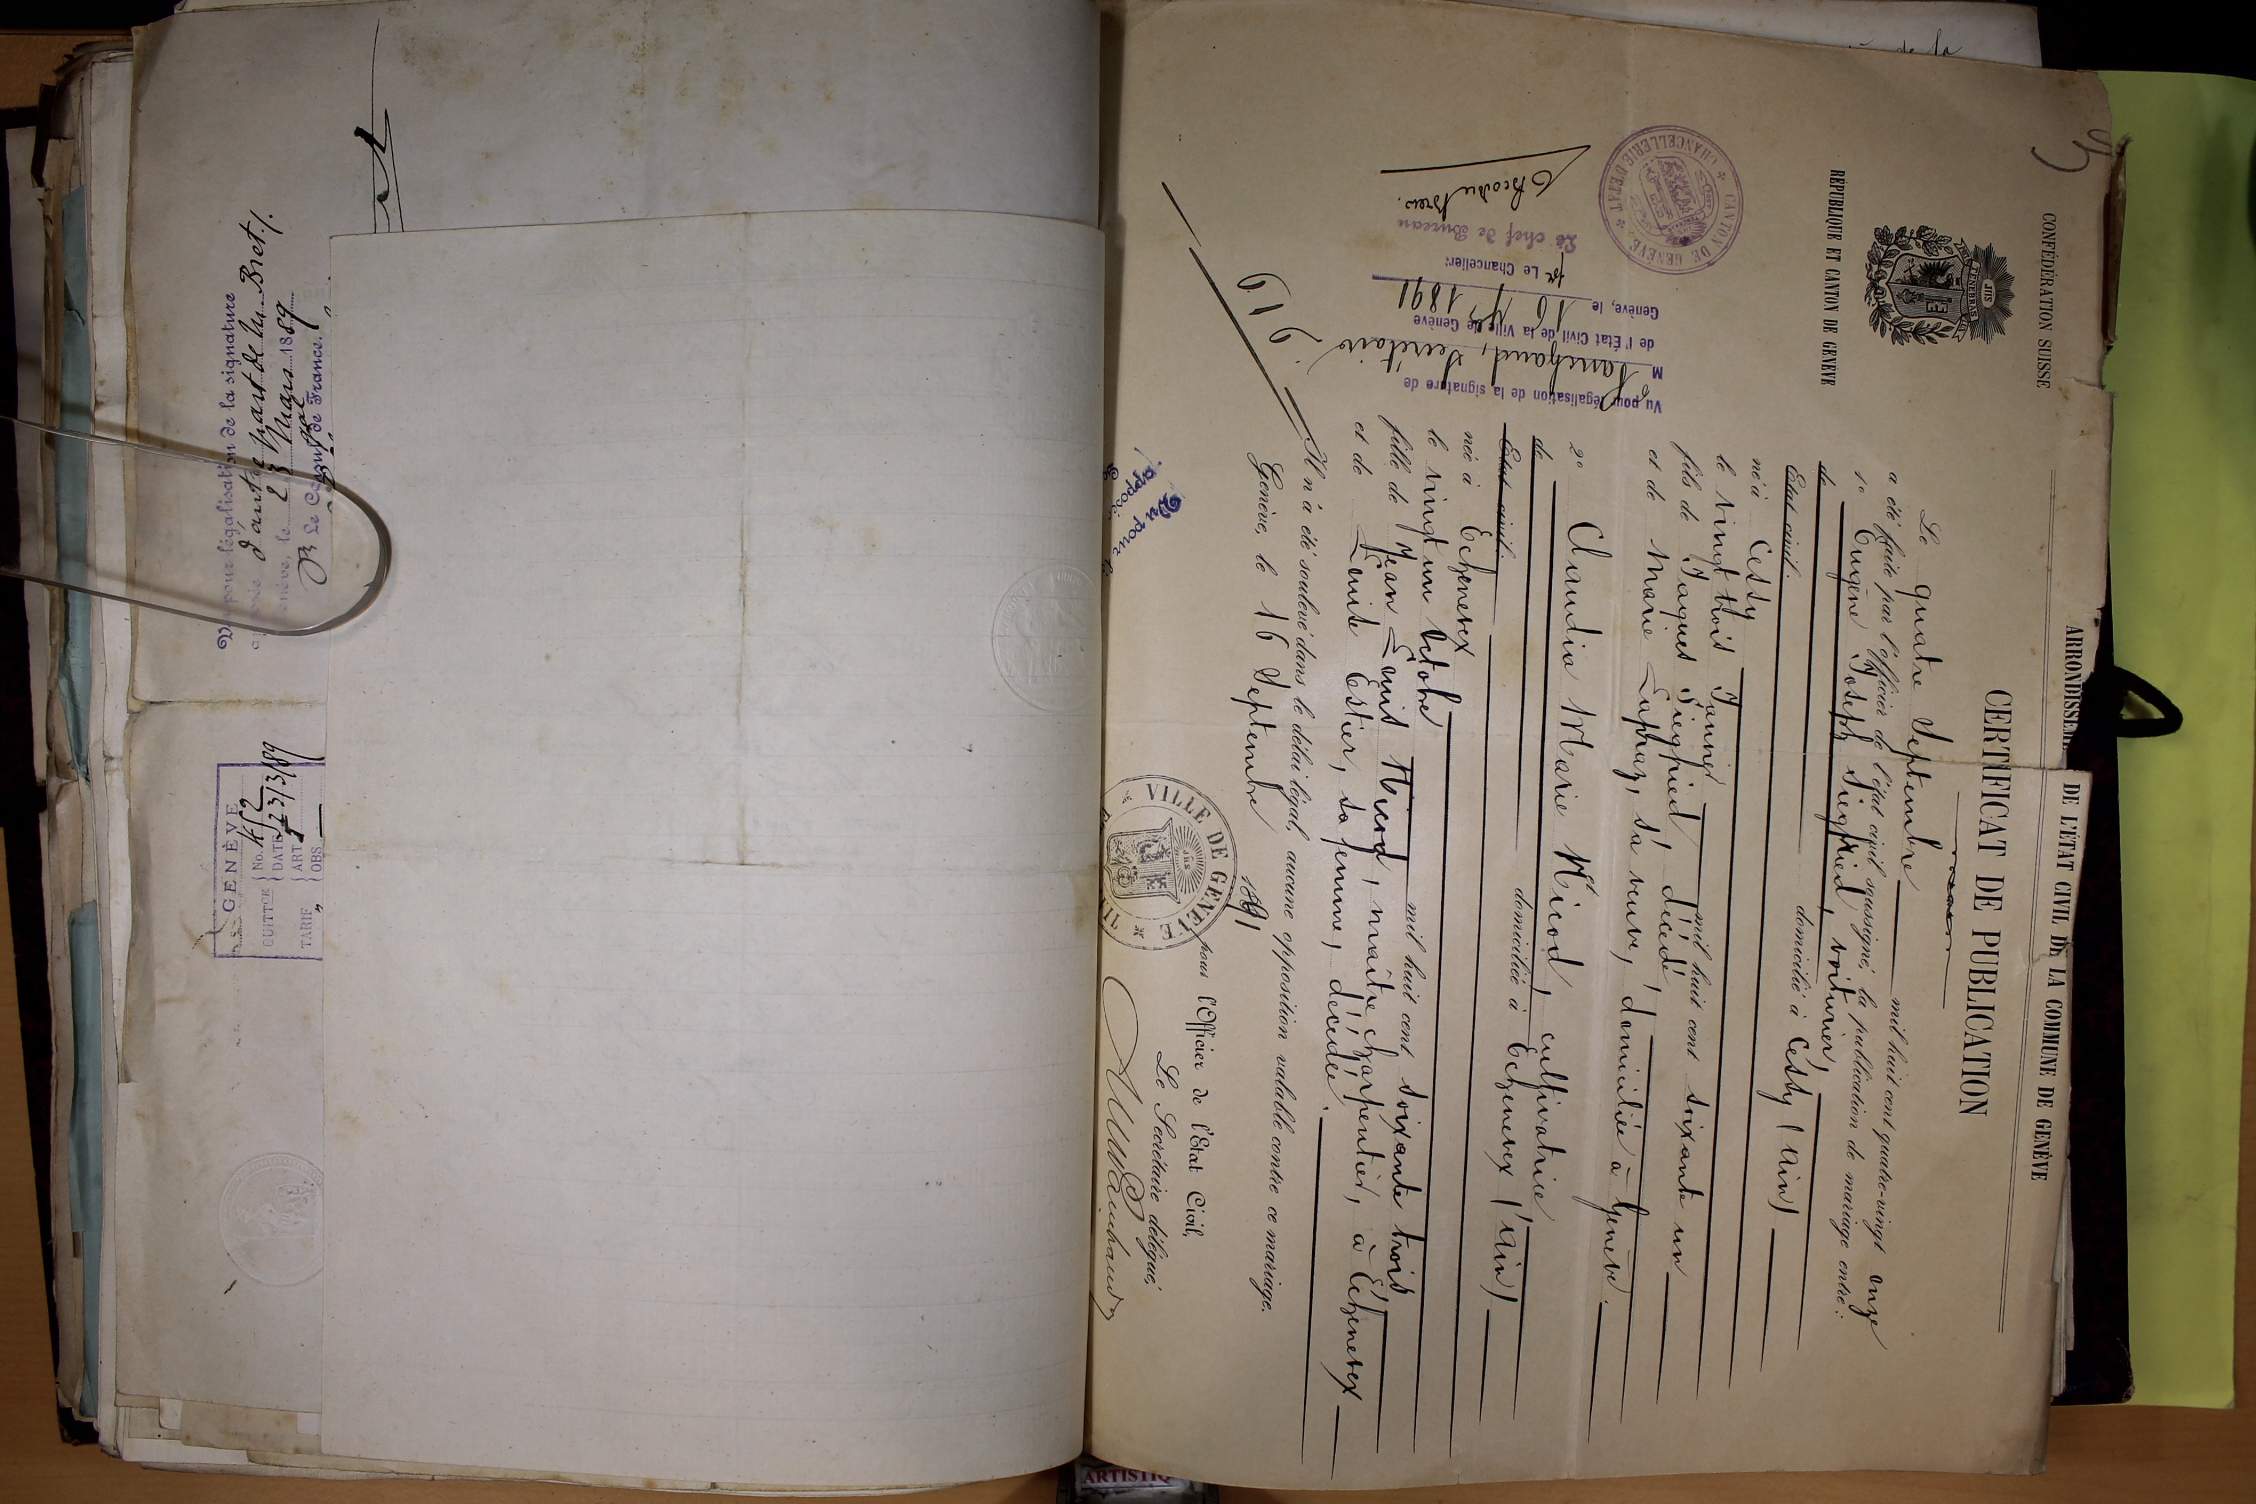 Vu pour légalisation de la signature
d'autre part de M. Bret /.
Genève, le 23 Mars 1889
Le Consul de France.
GENÈVE
QUITTCE No. 452
DATE 23/3/89
TARIF ART
OBS
CONFÉDÉRATION SUISSE
JUS
POST TENEBRAS LUX
RÉPUBLIQUE ET CANTON DE GENÈVE
ARRONDISSEMENT DE L'ÉTAT CIVIL DE LA COMMUNE DE GENÈVE
CERTIFICAT DE PUBLICATION
Le quatre Septembre mil huit cent quatre-vingt onze
a été faite par l'officier de l'état civil soussigné, la publication de mariage entre:
1o Eugène Joseph Siegfried, voiturier,
de domicilié à Cessy (Ain)
Etat civil:
né à Cessy
le vingt trois Janvier mil huit cent soixante un
fils de Jaques Siegfried, décédé
et de Marie Laphaz, sa veuve, domiciliée à Genève.
2o Claudia Marie Nicod, cultivatrice
de domiciliée à Echenevex (Ain)
Etat civil:
née à Echenevex
le vingt un Octobre mil huit cent soixante trois
fille de Jean Louis Nicod, maître charpentier, à Echenevex
et de Louise Estier, sa femme, décédée.
Il n'a été soulevé dans le délai légal, aucune opposition valable contre ce mariage.
Genève, le 16 Septembre 1891
pour l'Officier de l'Etat Civil,
Le Secrétaire délégué,
VILLE DE GENÈVE
Vu pour légalisation de la signature de
M Marchand, Secrétaire
de l'État Civil de la Ville de Genève
Genève, le 16 7bre 1891
pr Le Chancelier:
Le chef de Bureau
CANTON DE GENÈVE
CHANCELLERIE D'ETAT
916
Vu pour la
apposée
ARTISTIQ